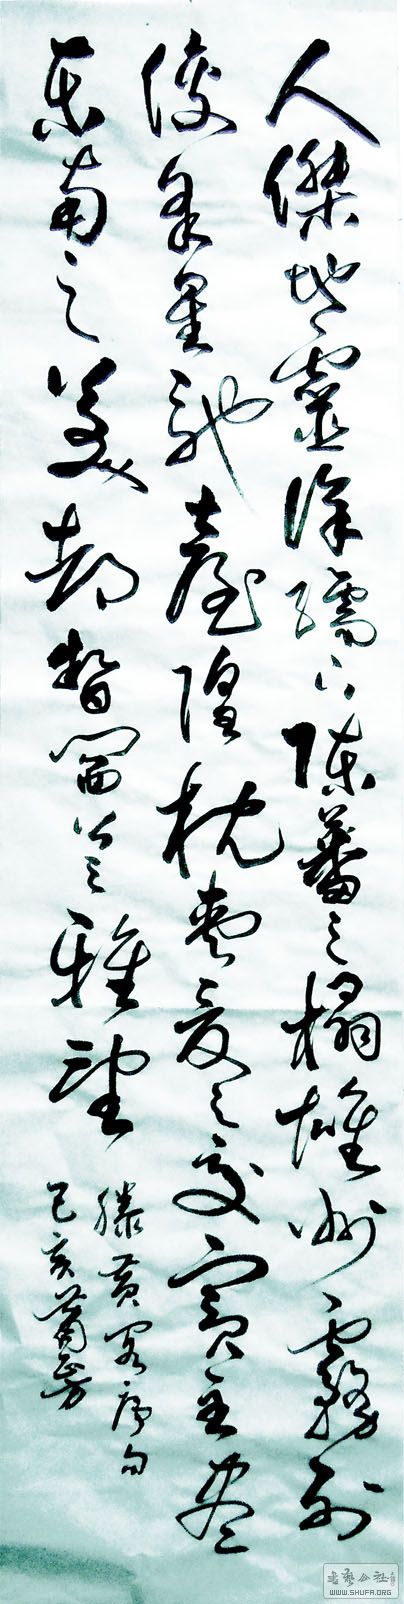 人傑地靈徐孺下陳蕃之榻雄州霧列
俊采星馳臺隍枕夷夏之交賓主盡
東南之美都督閻公之雅望
滕黄閣序句
己亥
書藝公社
WWW.SHUFA.ORG